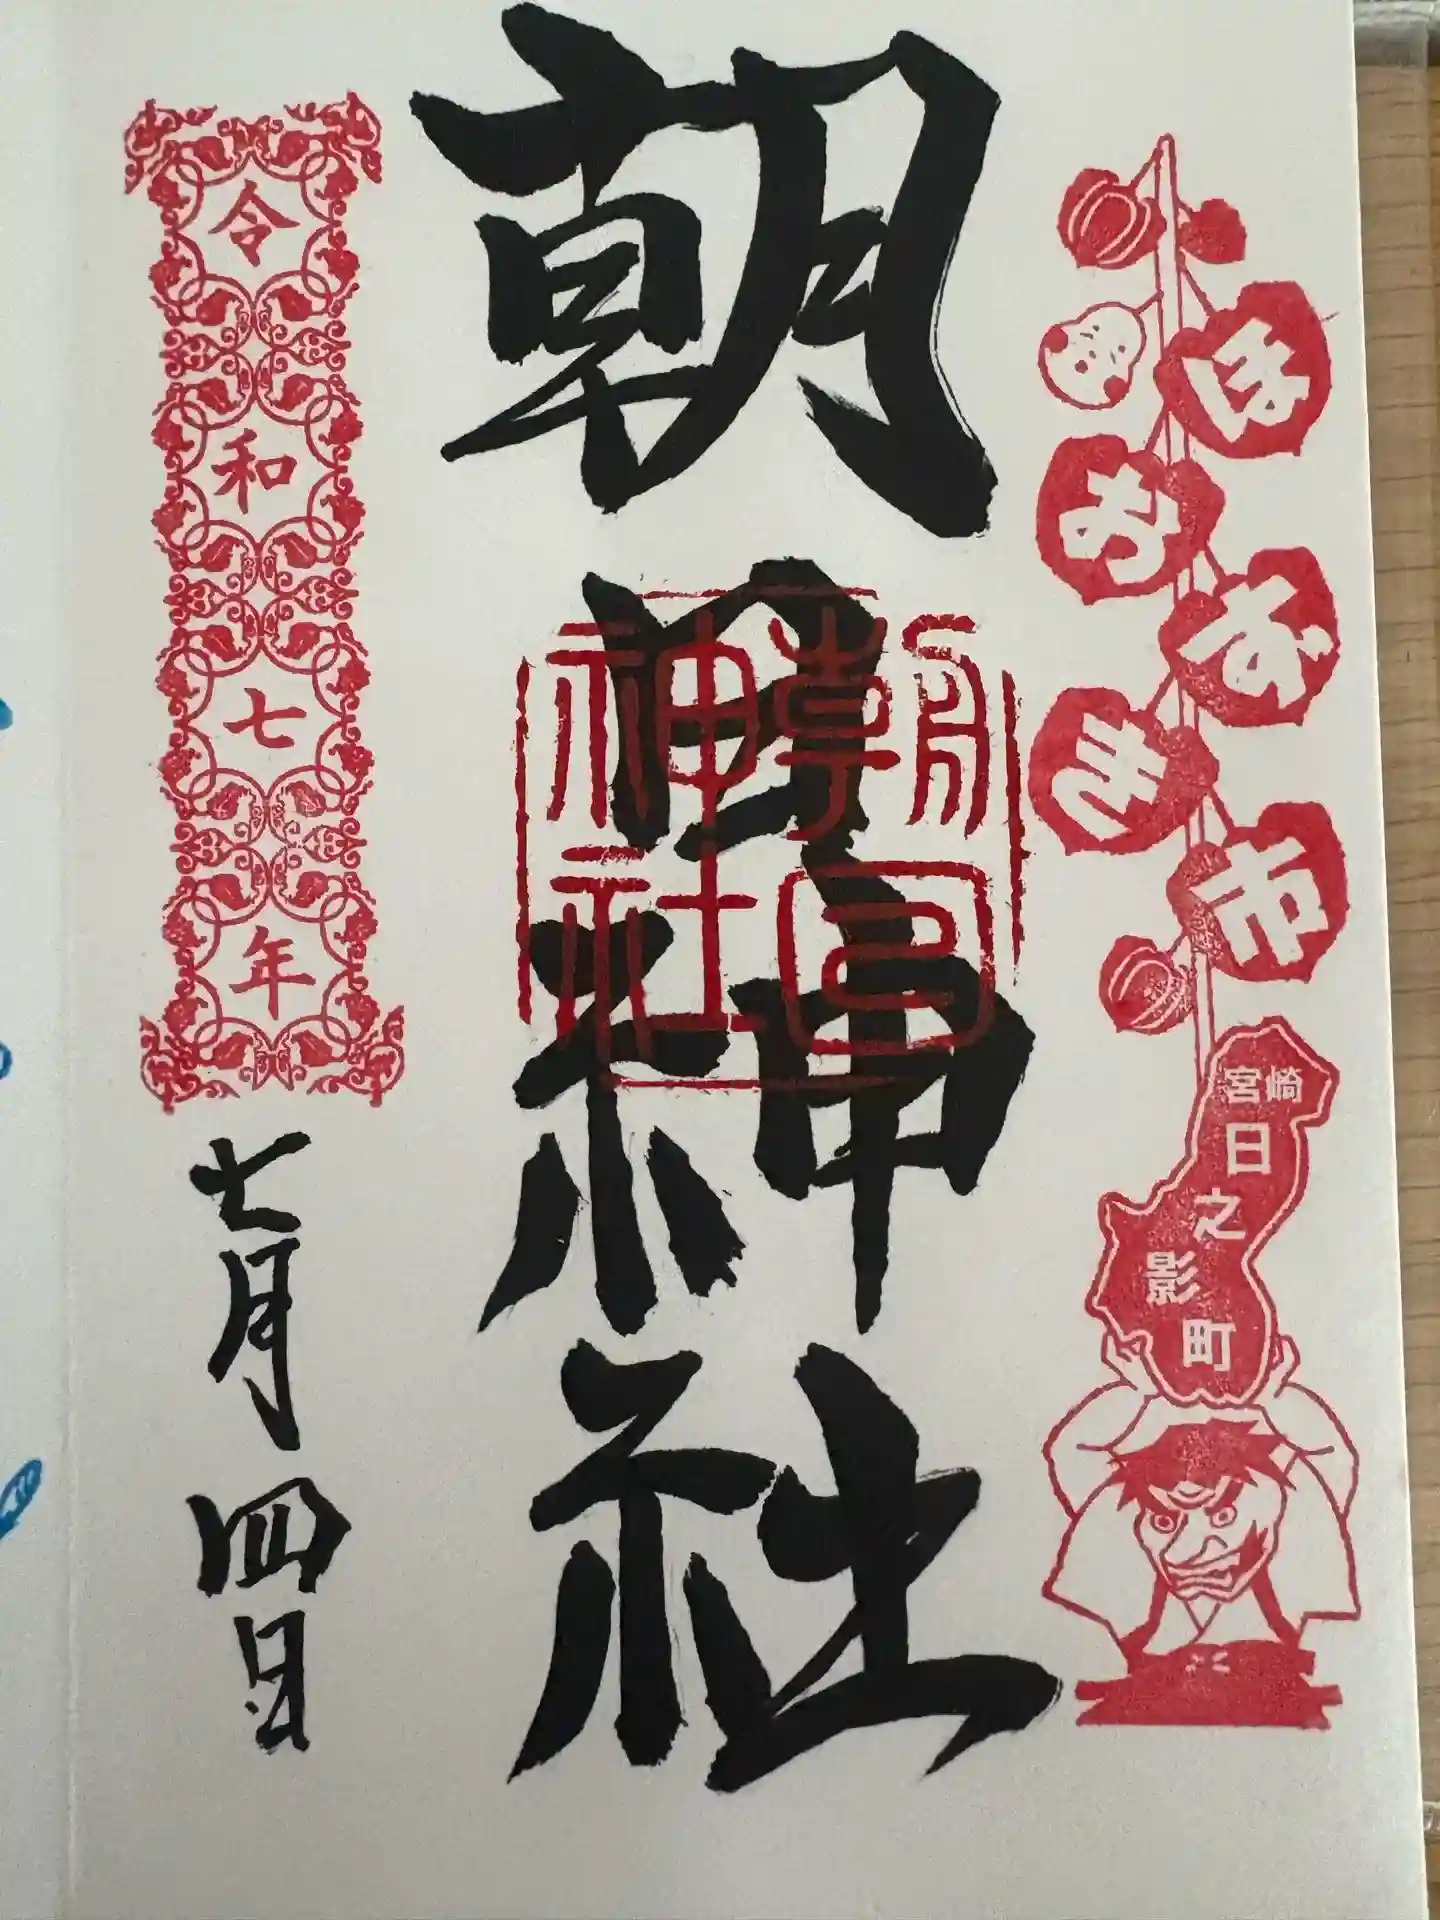 ほおずき市
宮崎
日之影町
朝日神社
朝日神社
令和七年
七月四日